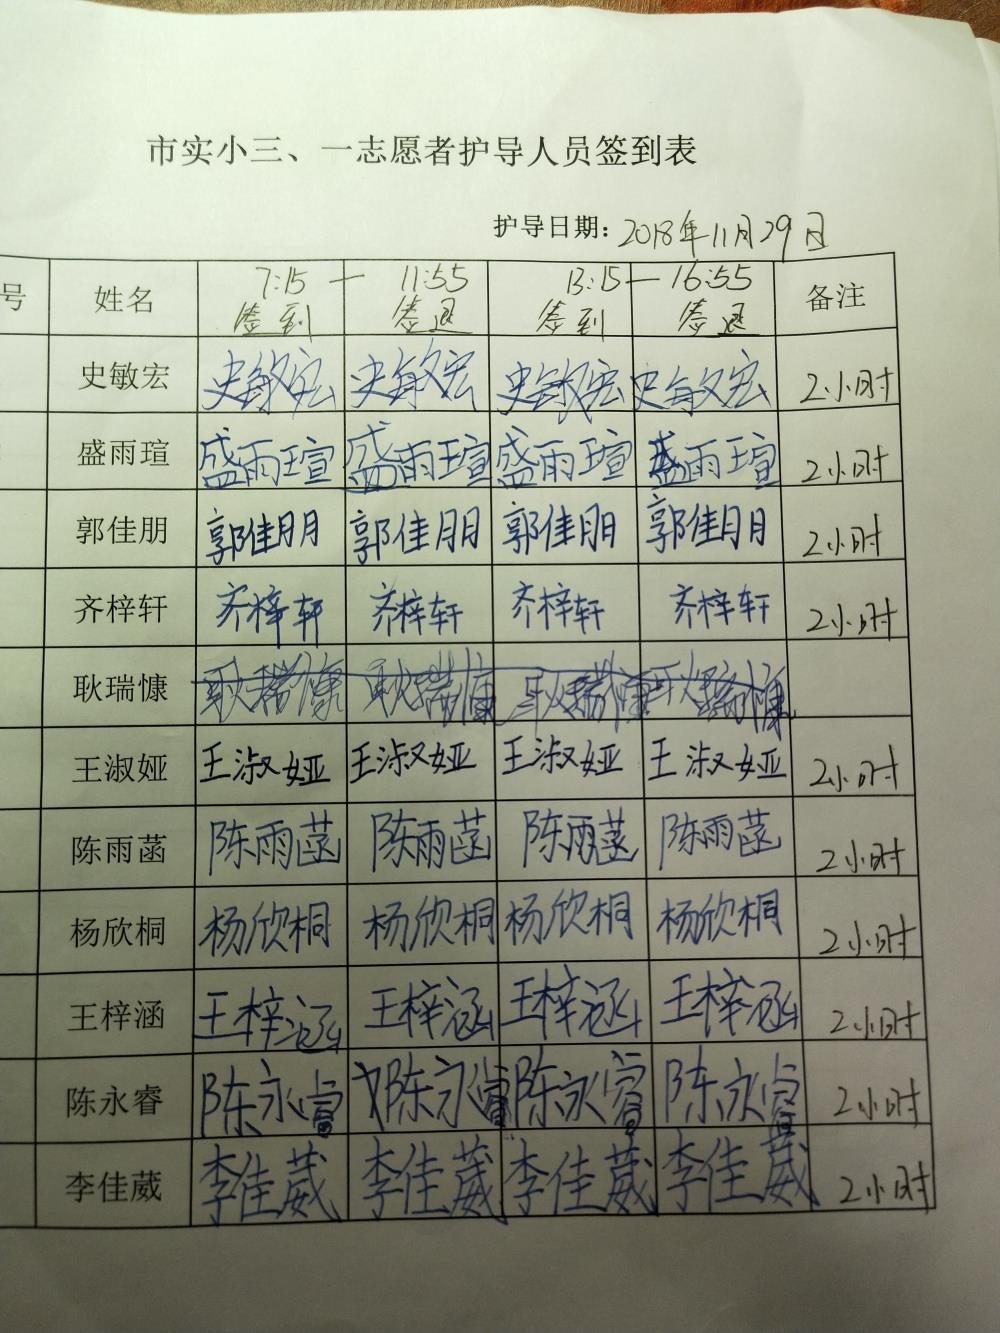 市实小三、一志愿者护导人员签到表
护导日期：2018年11月29日
号 姓名 7:15 — 11:55 13:15 — 16:55 备注
签到 签退 签到 签退
史敏宏 史敏宏 史敏宏 史敏宏 史敏宏 2小时
盛雨瑄 盛雨瑄 盛雨瑄 盛雨瑄 盛雨瑄 2小时
郭佳朋 郭佳朋 郭佳朋 郭佳朋 郭佳朋 2小时
齐梓轩 齐梓轩 齐梓轩 齐梓轩 齐梓轩 2小时
耿瑞慷 耿瑞慷 耿瑞慷 耿瑞慷 耿瑞慷
王淑娅 王淑娅 王淑娅 王淑娅 王淑娅 2小时
陈雨菡 陈雨菡 陈雨菡 陈雨菡 陈雨菡 2小时
杨欣桐 杨欣桐 杨欣桐 杨欣桐 杨欣桐 2小时
王梓涵 王梓涵 王梓涵 王梓涵 王梓涵 2小时
陈永睿 陈永睿 陈永睿 陈永睿 陈永睿 2小时
李佳葳 李佳葳 李佳葳 李佳葳 李佳葳 2小时